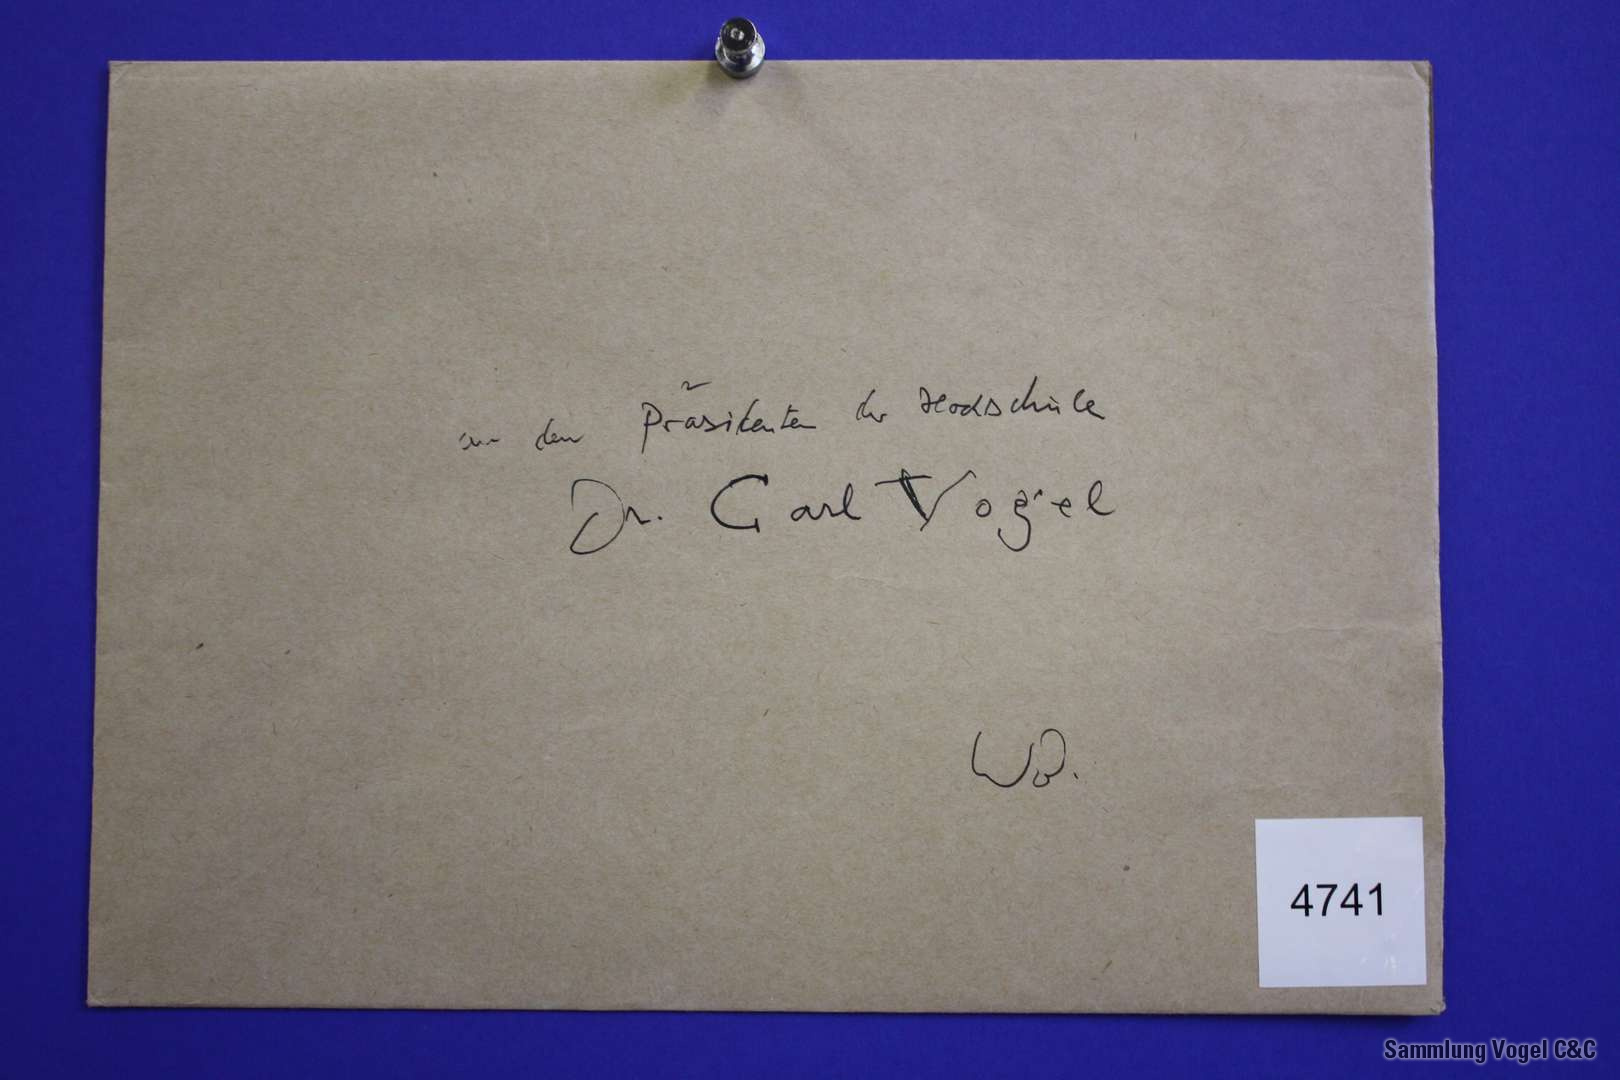 an den Präsidenten der Hochschule
Dr. Carl Vogel
WD.
4741
Sammlung Vogel C&C